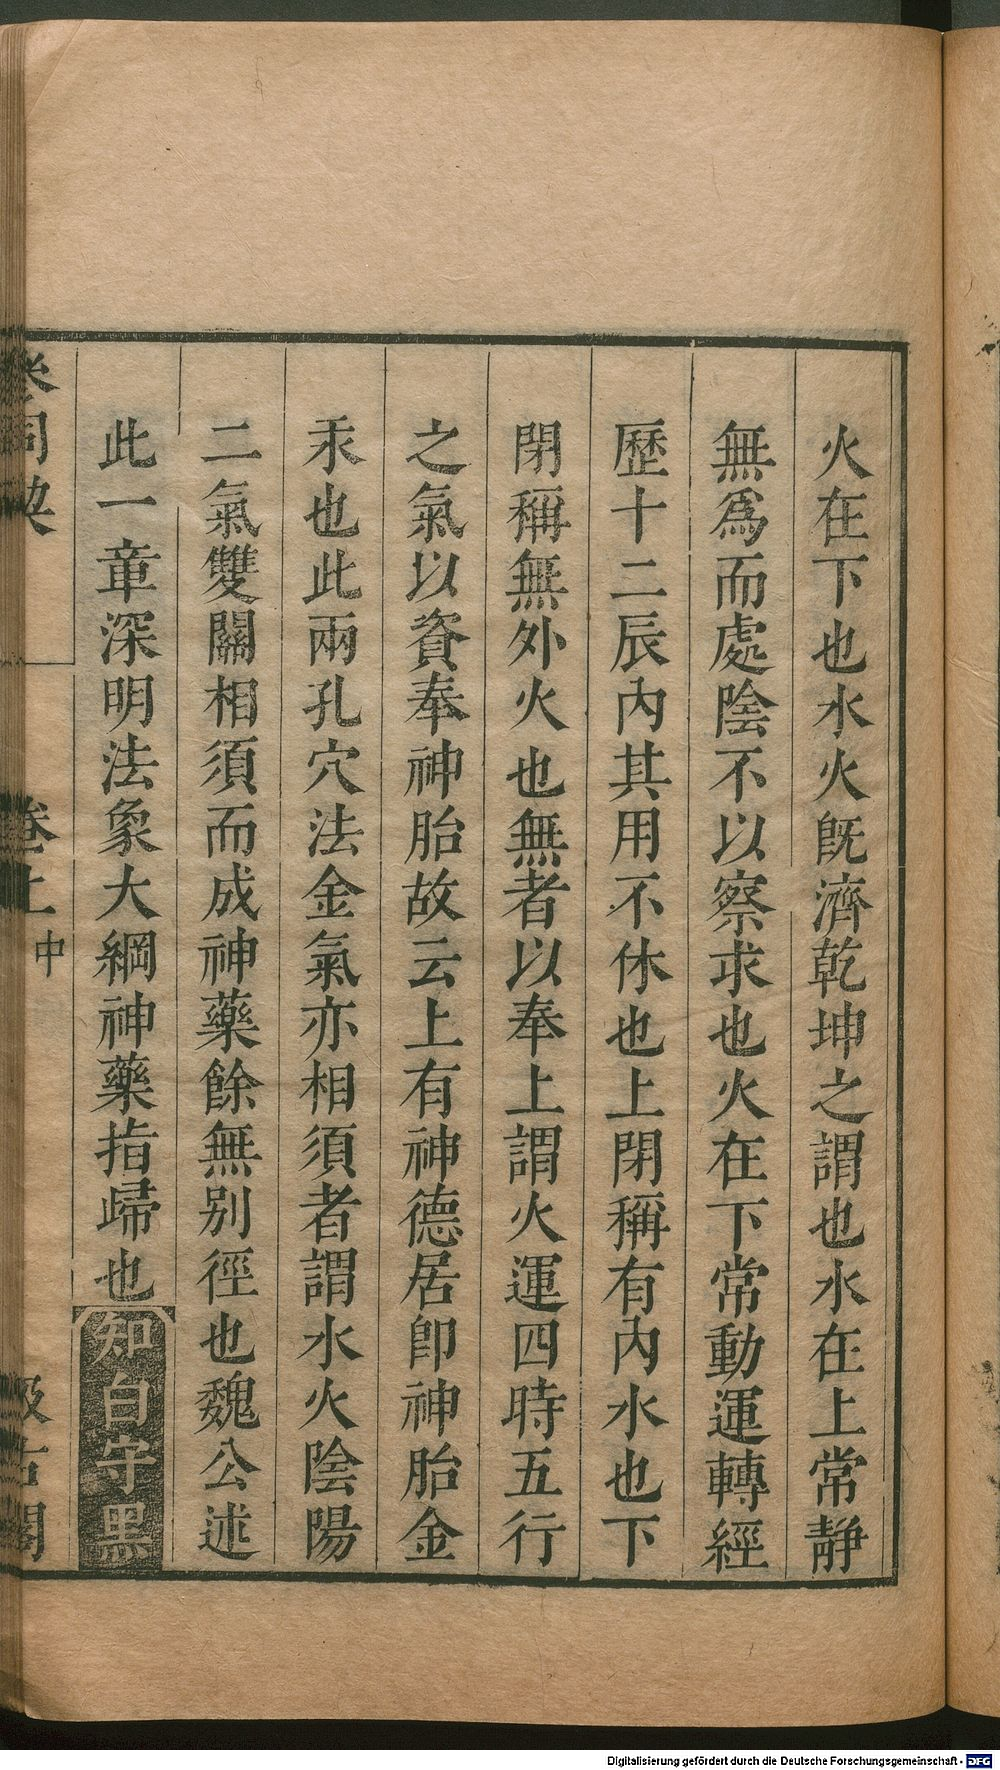 火在下也水火既濟乾坤之謂也水在上常靜
無爲而處陰不以察求也火在下常動運轉經
歷十二辰內其用不休也上閉稱有內水也下
閉稱無外火也無者以奉上謂火運四時五行
之氣以資奉神胎故云上有神德居卽神胎金
汞也此兩孔穴法金氣亦相須者謂水火陰陽
二氣雙關相須而成神藥餘無别徑也魏公述
此一章深明法象大綱神藥指歸也知白守黑
參同契 卷上 中 汲古閣
Digitalisierung gefördert durch die Deutsche Forschungsgemeinschaft - DFG